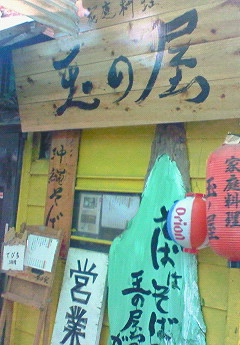 家庭料理
玉の屋
沖縄そば
営業
そばはそば
玉の屋が
Orion
家庭料理
玉の屋